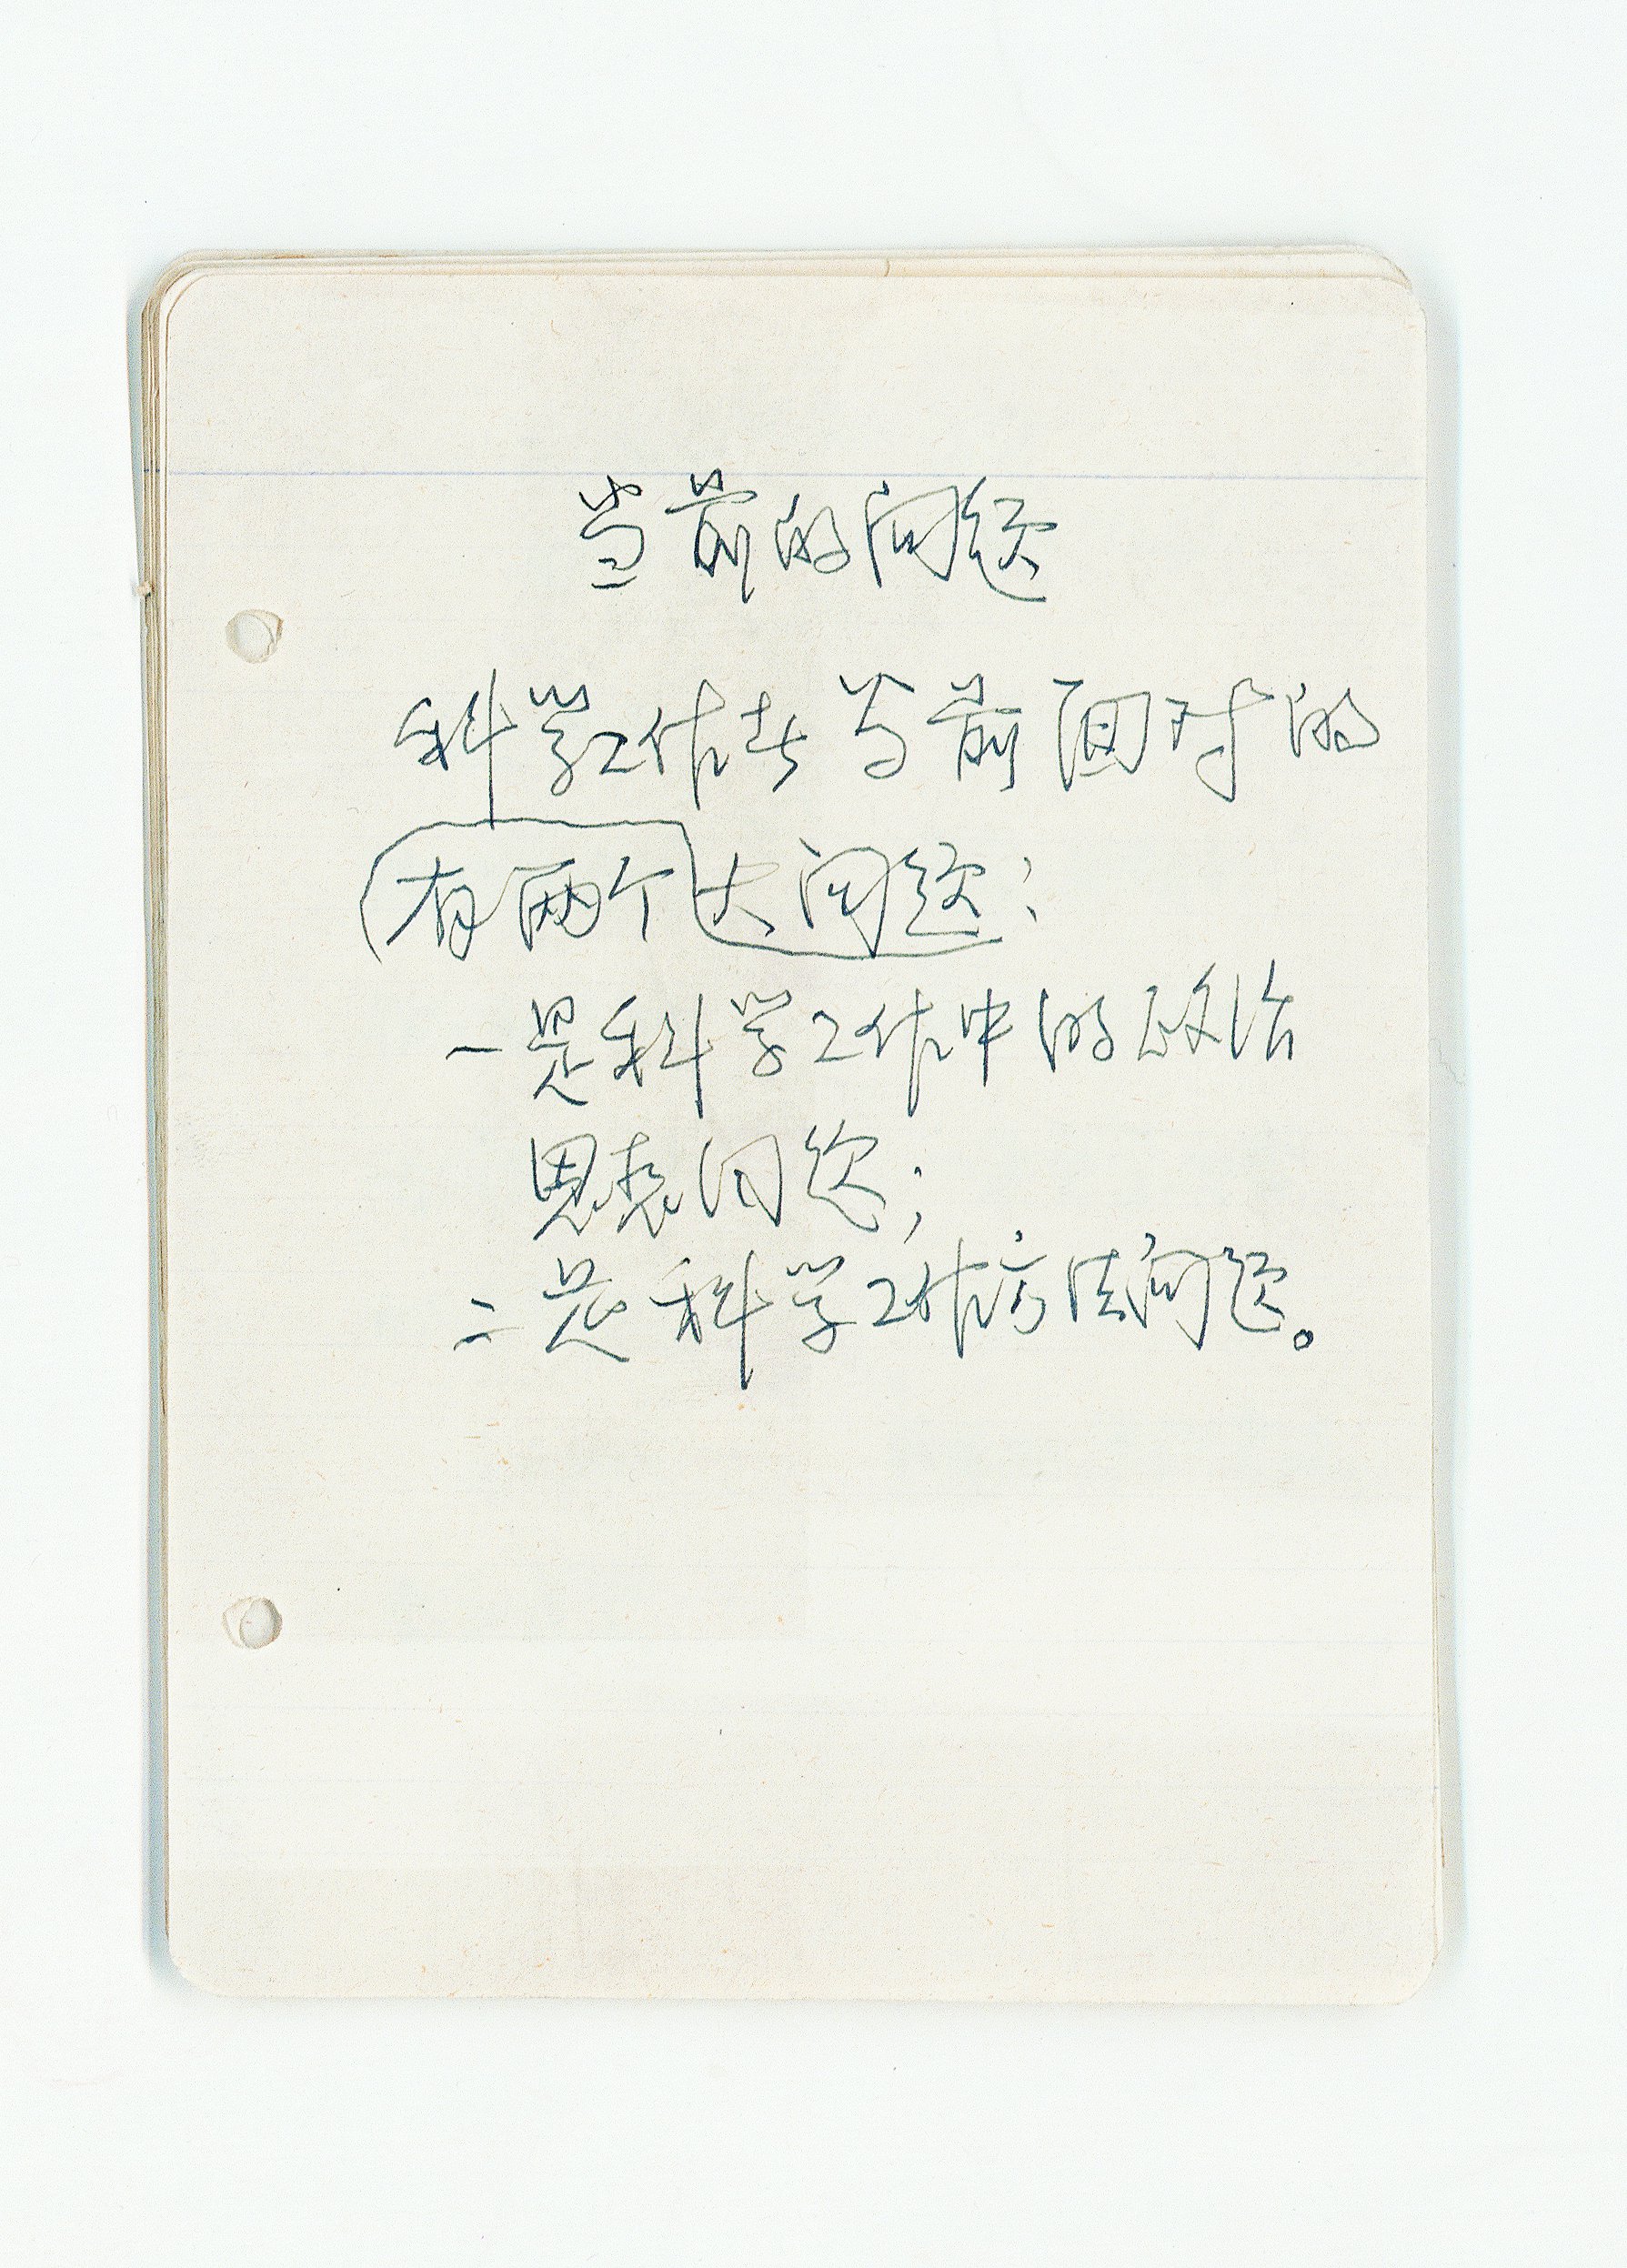 当前的问题
科学工作在当前面对的
有两个大问题：
一是科学工作中的政治
思想问题；
二是科学工作方法问题。